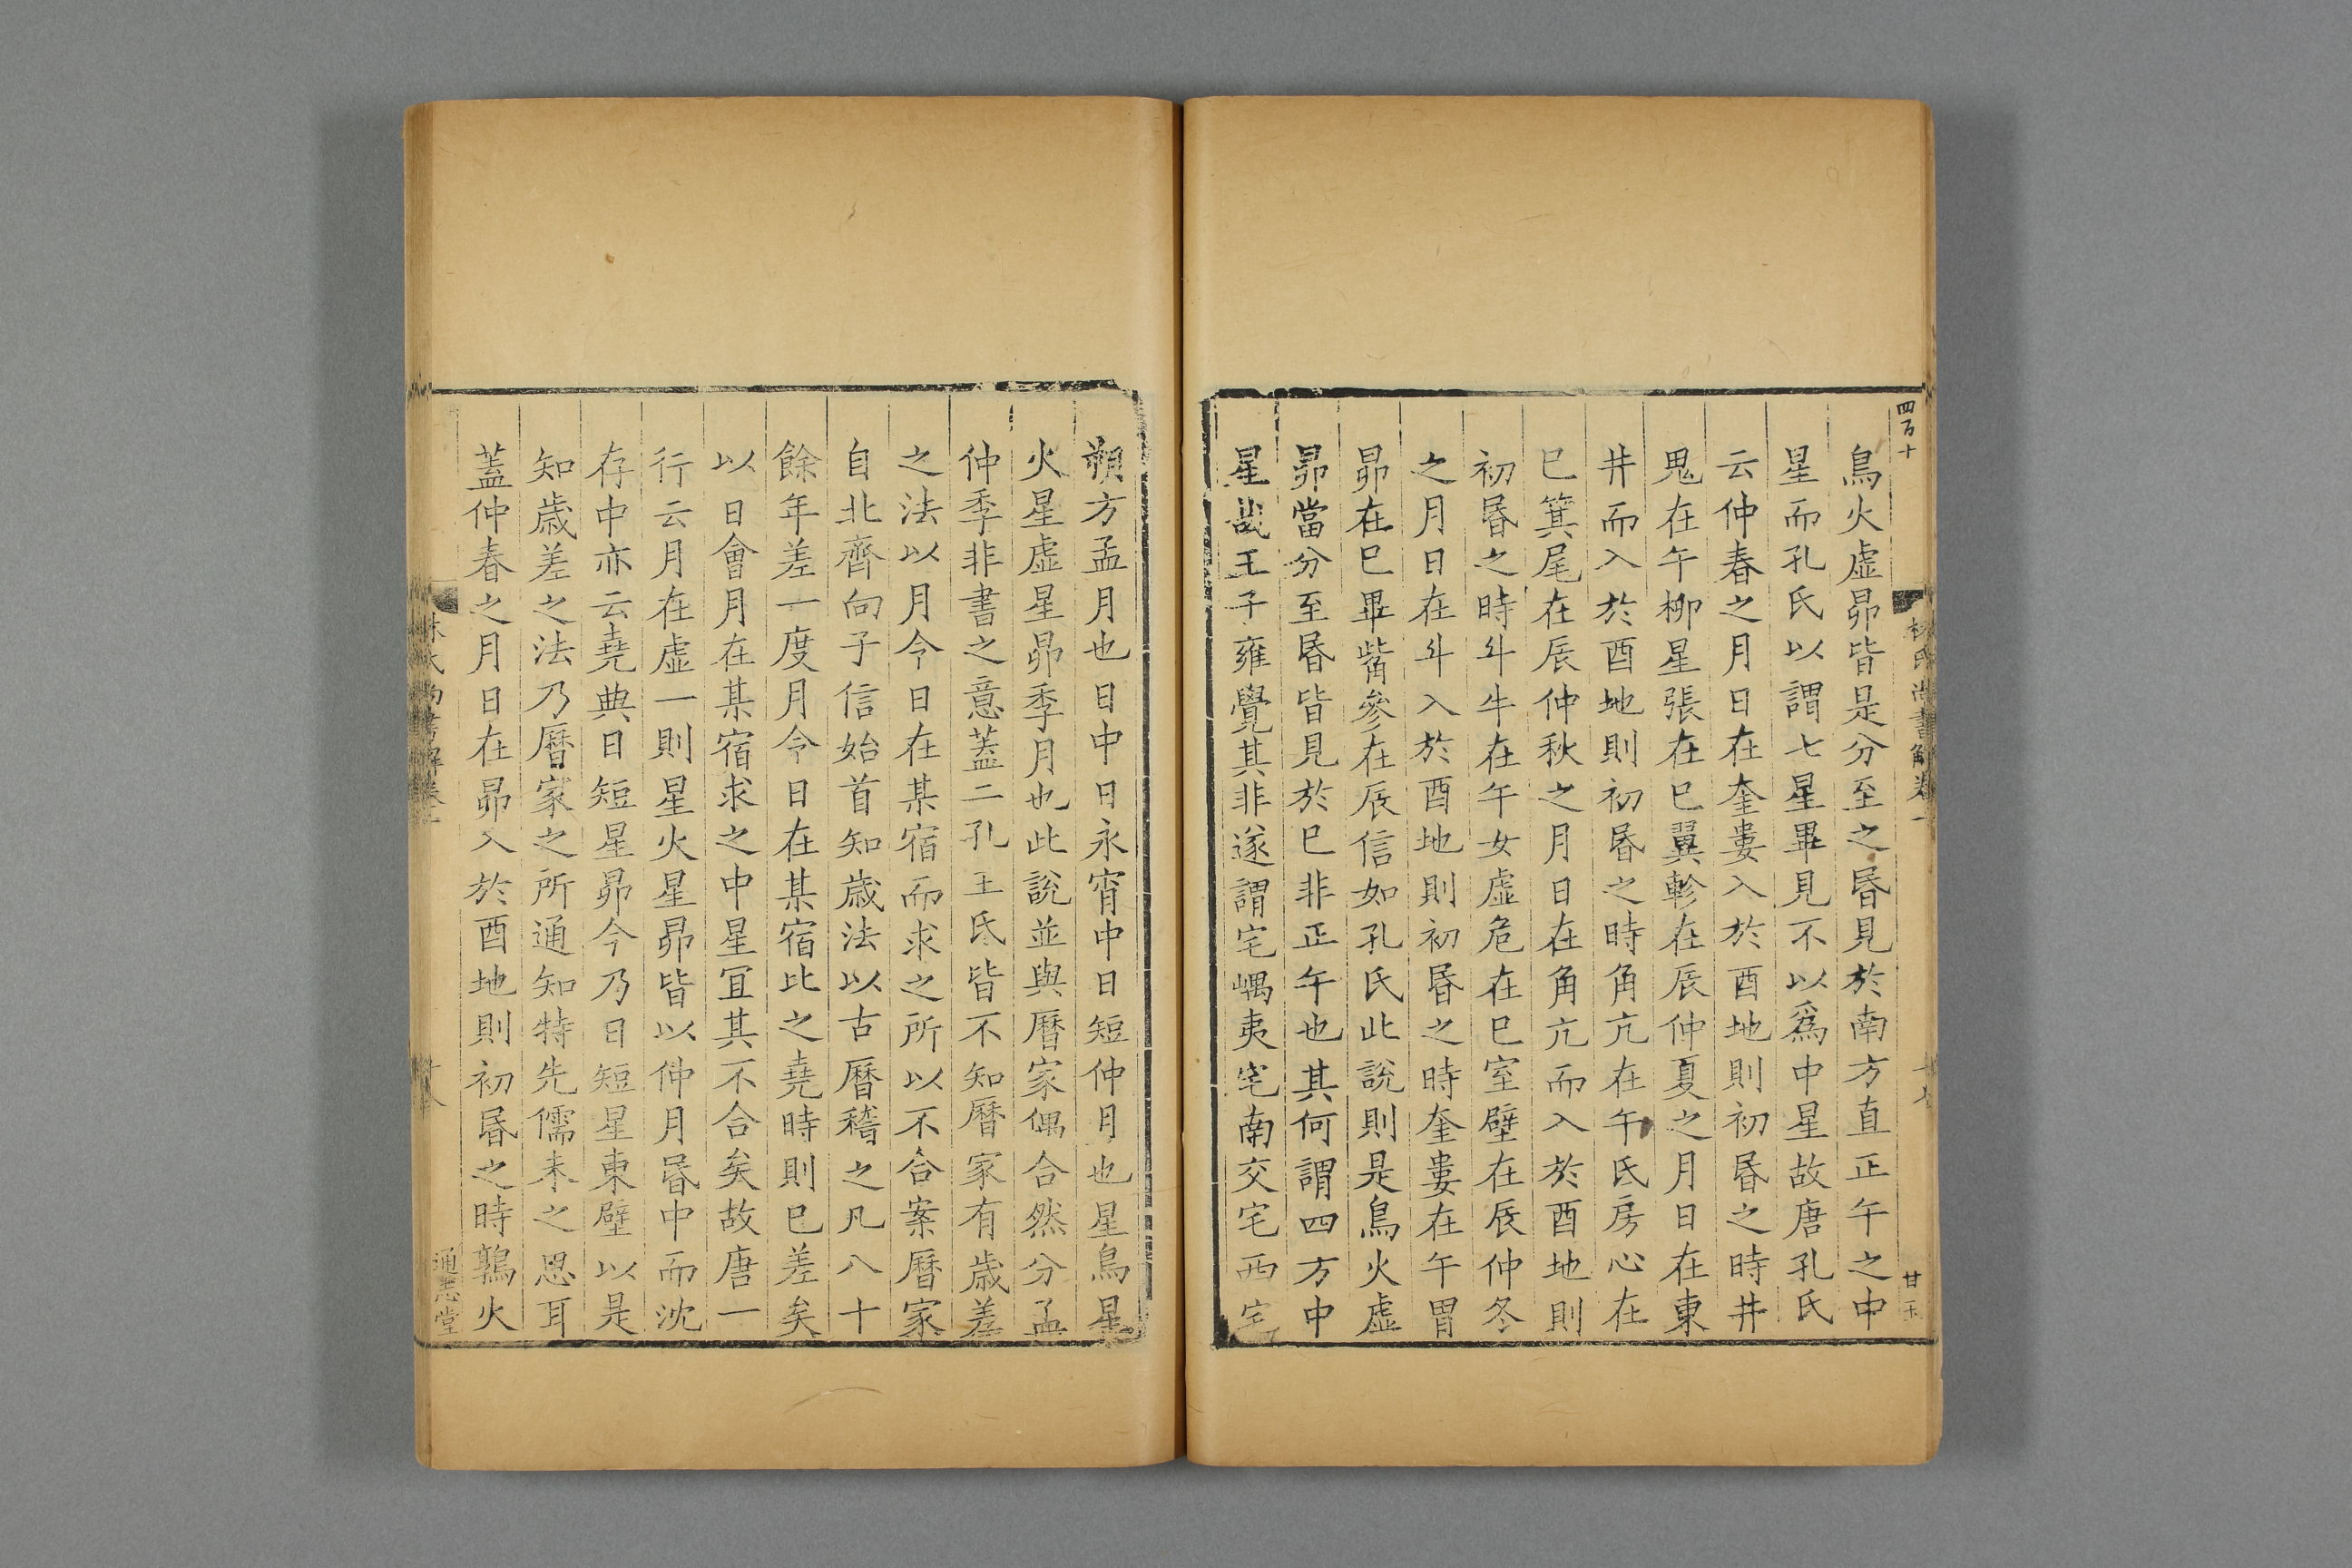 四百十
林氏尚書解卷一
十七
甘玉
鳥火虛昴皆是分至之昬見於南方直正午之中
星而孔氏以謂七星畢見不以爲中星故唐孔氏
云仲春之月日在奎婁入於酉地則初昬之時井
鬼在午柳星張在巳翼軫在辰仲夏之月日在東
井而入於酉地則初昬之時角亢在午氐房心在
巳箕尾在辰仲秋之月日在角亢而入於酉地則
初昬之時斗牛在午女虛危在巳室壁在辰仲冬
之月日在斗入於酉地則初昬之時奎婁在午胃
昴在巳畢觜參在辰信如孔氏此說則是鳥火虛
昴當分至昬皆見於巳非正午也其何謂四方中
星哉王子雍覺其非遂謂宅嵎夷宅南交宅西宅
朔方孟月也日中日永宵中日短仲月也星鳥星
火星虛星昴季月也此說並與曆家偶合然分孟
仲季非書之意蓋二孔王氏皆不知曆家有歲差
之法以月令日在某宿而求之所以不合案曆家
自北齊向子信始首知歲法以古曆稽之凡八十
餘年差一度月令日在某宿比之堯時則巳差矣
以日會月在某宿求之中星宜其不合矣故唐一
行云月在虛一則星火星昴皆以仲月昬中而沈
存中亦云堯典日短星昴今乃日短星東壁以是
知歲差之法乃曆家之所通知特先儒未之思耳
蓋仲春之月日在昴入於酉地則初昬之時鶉火
林氏尚書解卷一
十八
通志堂